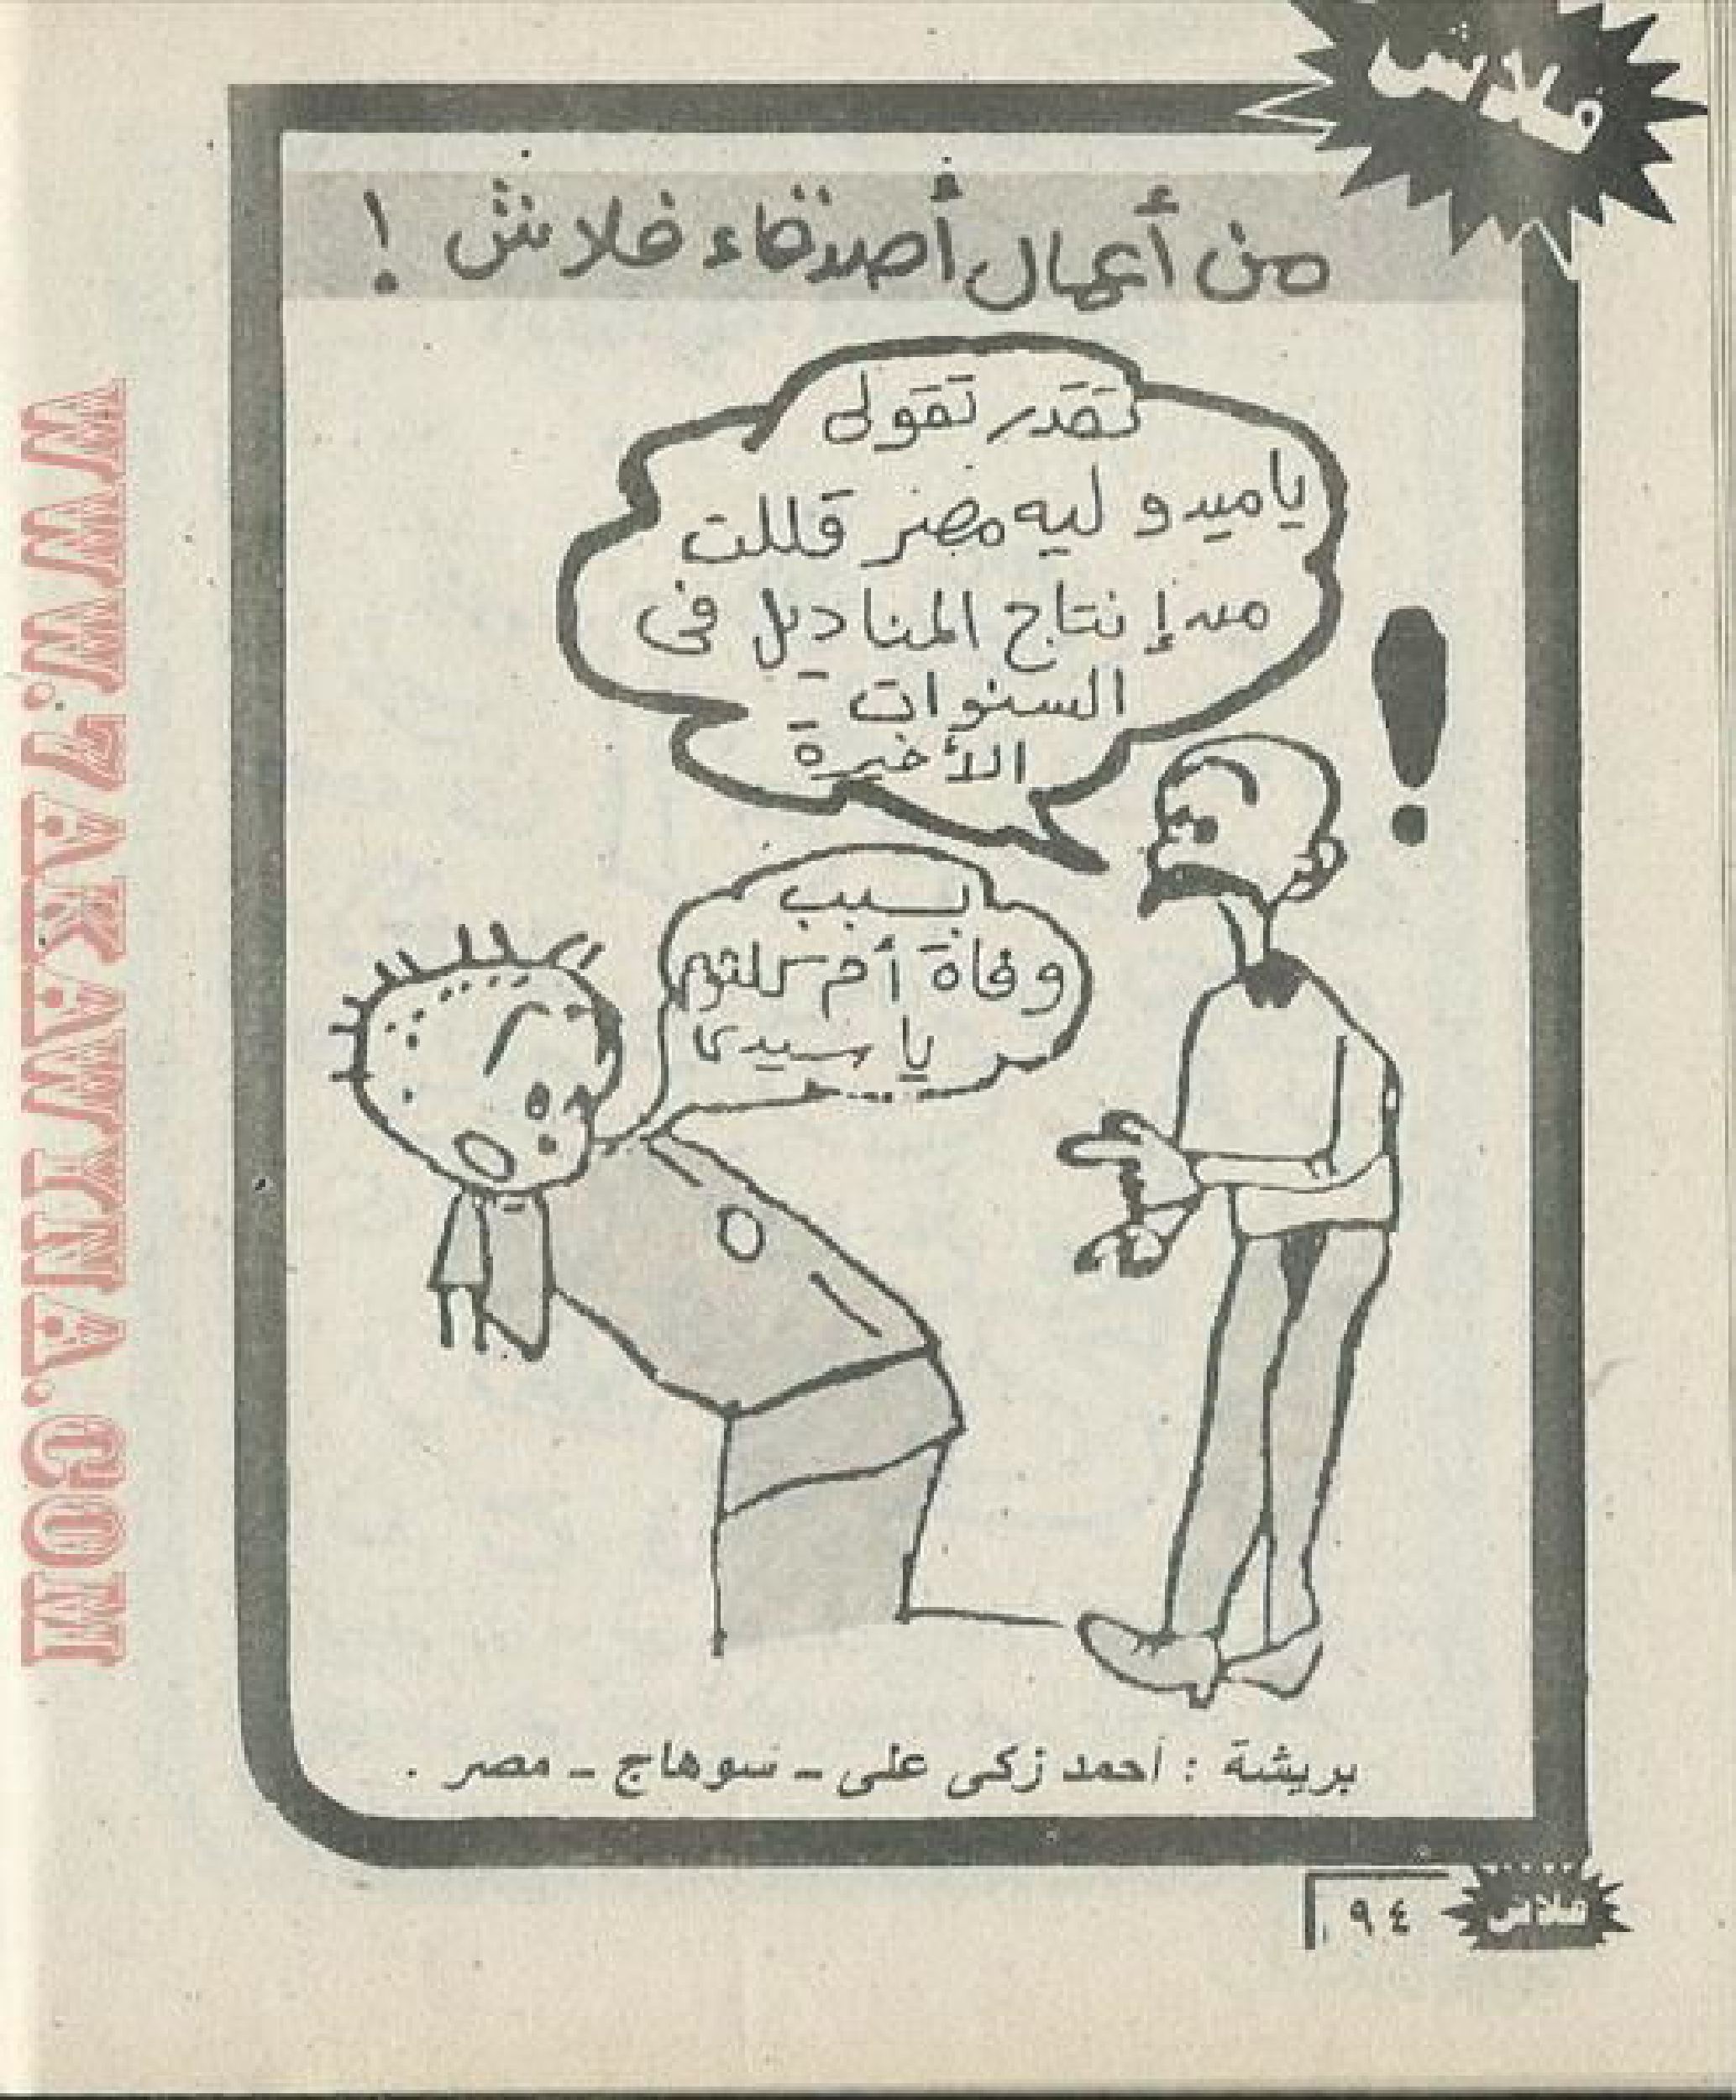 فلاش
من أعمال أصدقاء فلاش !
تقدر تقولى
ياميدو ليه مصر قللت
من إنتاج المناديل فى
السنوات
الأخيرة
بسبب
وفاة أم كلثوم
يا سيدى
بريشة : أحمد زكى على - سوهاج - مصر .
٩٤
فلاش
WWW.7AKAWITNA.COM